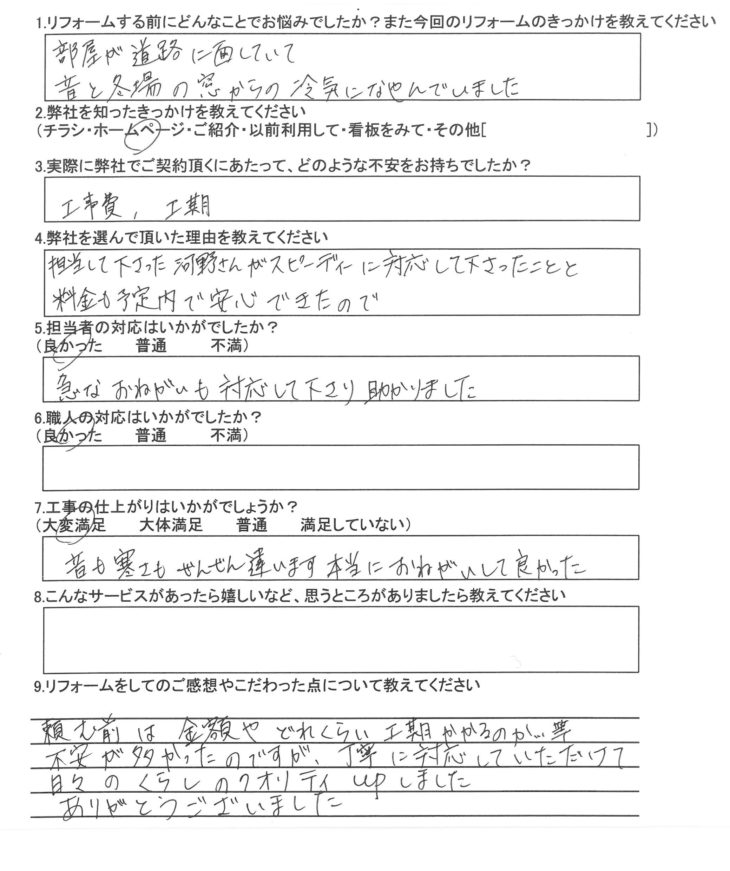 1.リフォームする前にどんなことでお悩みでしたか？また今回のリフォームのきっかけを教えてください
部屋が道路に面していて
音と冬場の窓からの冷気になやんでいました
2.弊社を知ったきっかけを教えてください
(チラシ・ホームページ・ご紹介・以前利用して・看板をみて・その他[ ])
3.実際に弊社でご契約頂くにあたって、どのような不安をお持ちでしたか？
工事費, 工期
4.弊社を選んで頂いた理由を教えてください
担当して下さった河野さんがスピーディーに対応して下さったことと
料金も予定内で安心できたので
5.担当者の対応はいかがでしたか？
(良かった 普通 不満)
急なおねがいも対応して下さり助かりました
6.職人の対応はいかがでしたか？
(良かった 普通 不満)
7.工事の仕上がりはいかがでしょうか？
(大変満足 大体満足 普通 満足していない)
音も寒さもぜんぜん違います本当におねがいして良かった
8.こんなサービスがあったら嬉しいなど、思うところがありましたら教えてください
9.リフォームをしてのご感想やこだわった点について教えてください
頼む前は金額やどれくらい工期かかるのか…等
不安が多かったのですが、丁寧に対応していただけて
日々のくらしのクオリティupしました
ありがとうございました